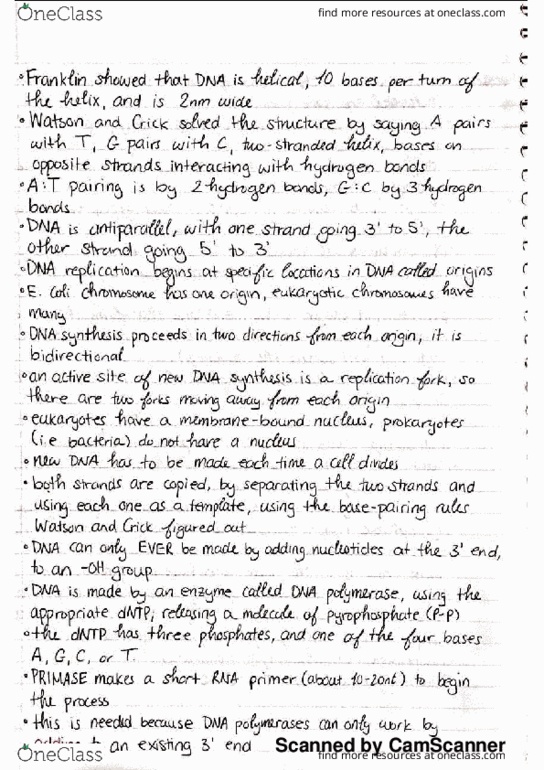 OneClass
find more resources at oneclass.com
• Franklin showed that DNA is helical, 10 bases per turn of
the helix, and is 2nm wide
• Watson and Crick solved the structure by saying A pairs
with T, G pairs with C, two-stranded helix, bases on
opposite strands interacting with hydrogen bonds
• A:T pairing is by 2 hydrogen bonds, G:C by 3 hydrogen
bonds
• DNA is antiparallel, with one strand going 3' to 5', the
other strand going 5' to 3'
• DNA replication begins at specific locations in DNA called origins
• E. Coli chromosome has one origin, eukaryotic chromosomes have
many
• DNA synthesis proceeds in two directions from each origin, it is
bidirectional
• an active site of new DNA synthesis is a replication fork, so
there are two forks moving away from each origin
• eukaryotes have a membrane-bound nucleus, prokaryotes
(i.e bacteria) do not have a nucleus
• new DNA has to be made each time a cell divides
• both strands are copied, by separating the two strands and
using each one as a template, using the base-pairing rules
Watson and Crick figured out
• DNA can only EVER be made by adding nucleotides at the 3' end,
to an -OH group
• DNA is made by an enzyme called DNA polymerase, using the
appropriate dNTP, releasing a molecule of pyrophosphate (P-P)
• the dNTP has three phosphates, and one of the four bases
A, G, C, or T.
• PRIMASE makes a short RNA primer (about 10-20nt) to begin
the process
• this is needed because DNA polymerases can only work by
an existing 3' end
Scanned by CamScanner
OneClass
find more resources at oneclass.com